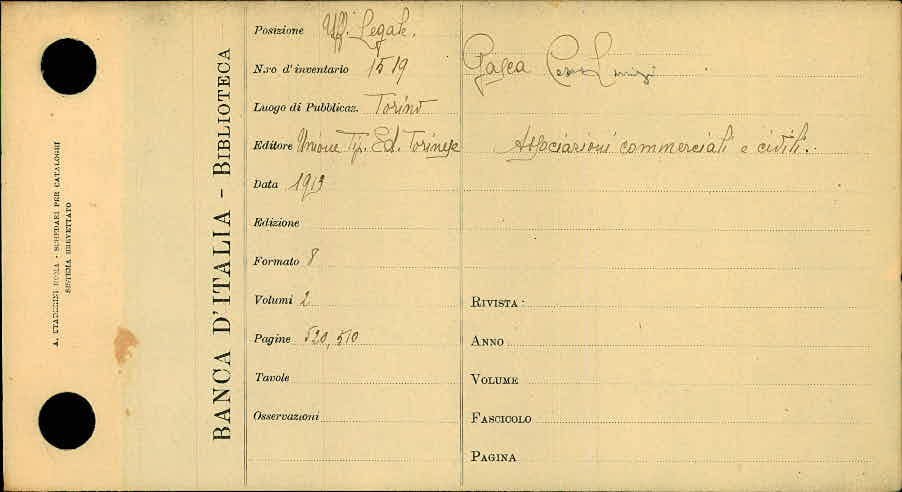 A. STADERINI ROMA - SCHEDARI PER CATALOGHI
SISTEMA BREVETTATO
BANCA D'ITALIA - BIBLIOTECA
Posizione Uff. Legale.
N.ro d'inventario 1519
Luogo di Pubblicaz. Torino
Editore Unione Tip. Ed. Torinese
Data 1913
Edizione
Formato 8
Volumi 2
Pagine 520, 510
Tavole
Osservazioni
Gasca Cesare Luigi
Associazioni commerciali e civili.
RIVISTA
ANNO
VOLUME
FASCICOLO
PAGINA